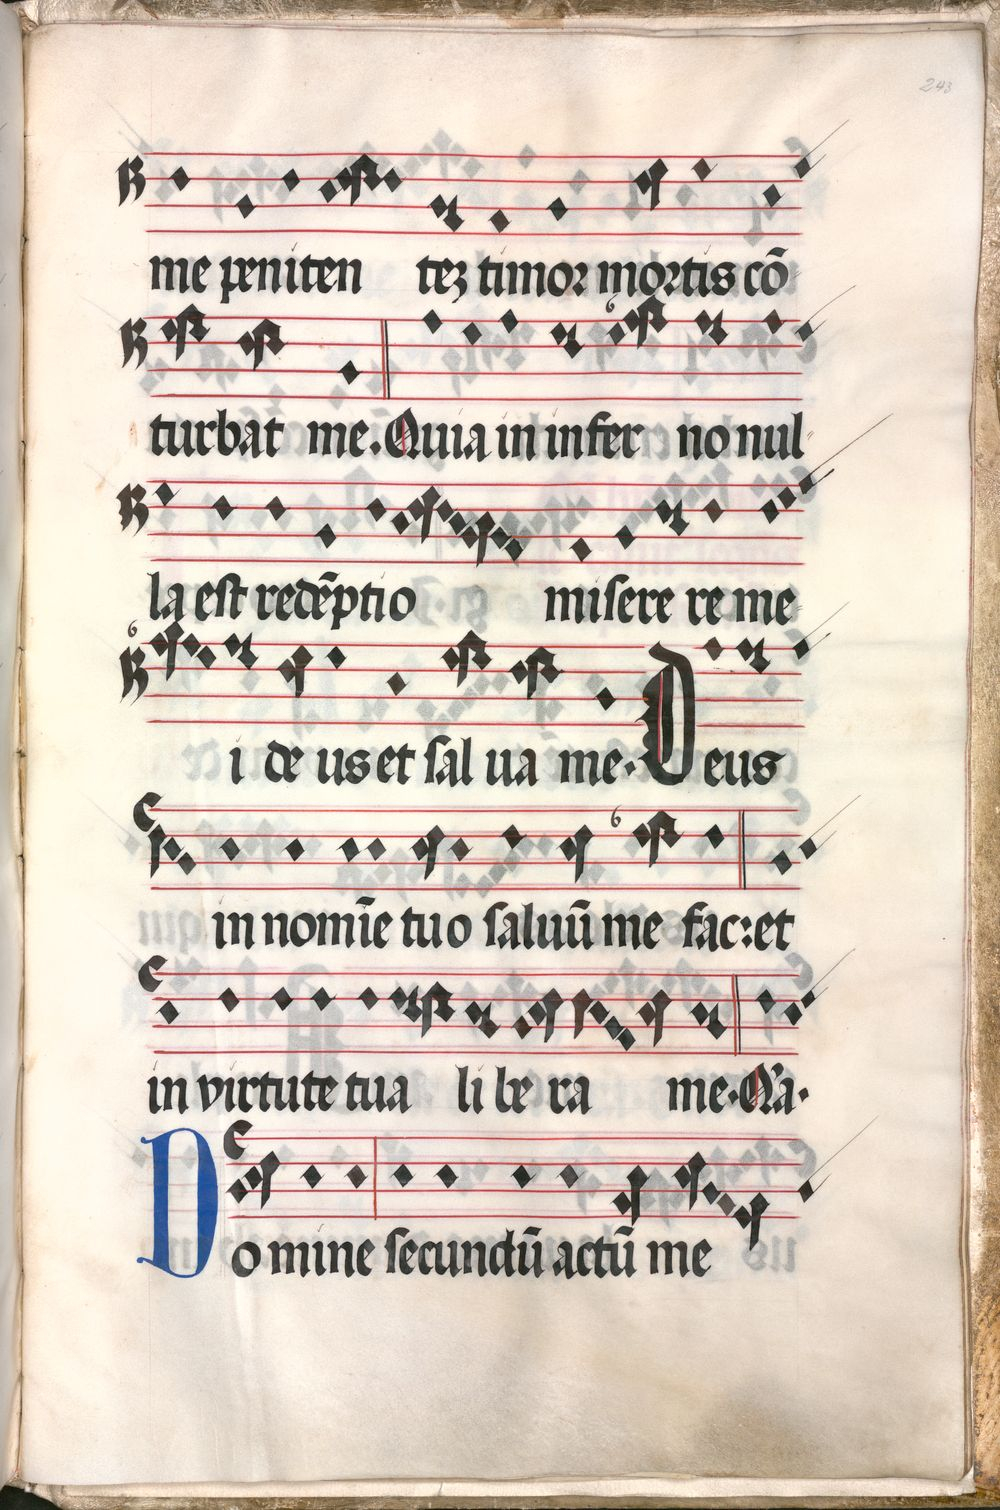 243
me peniten tez timor mortis cō
turbat me. Quia in infer no nul
la est redēptio misere re me
i de us et sal ua me. Deus
in nomīe tuo saluū me fac: et
in virtute tua li be ra me. Q'a.
Domine secundū actū me